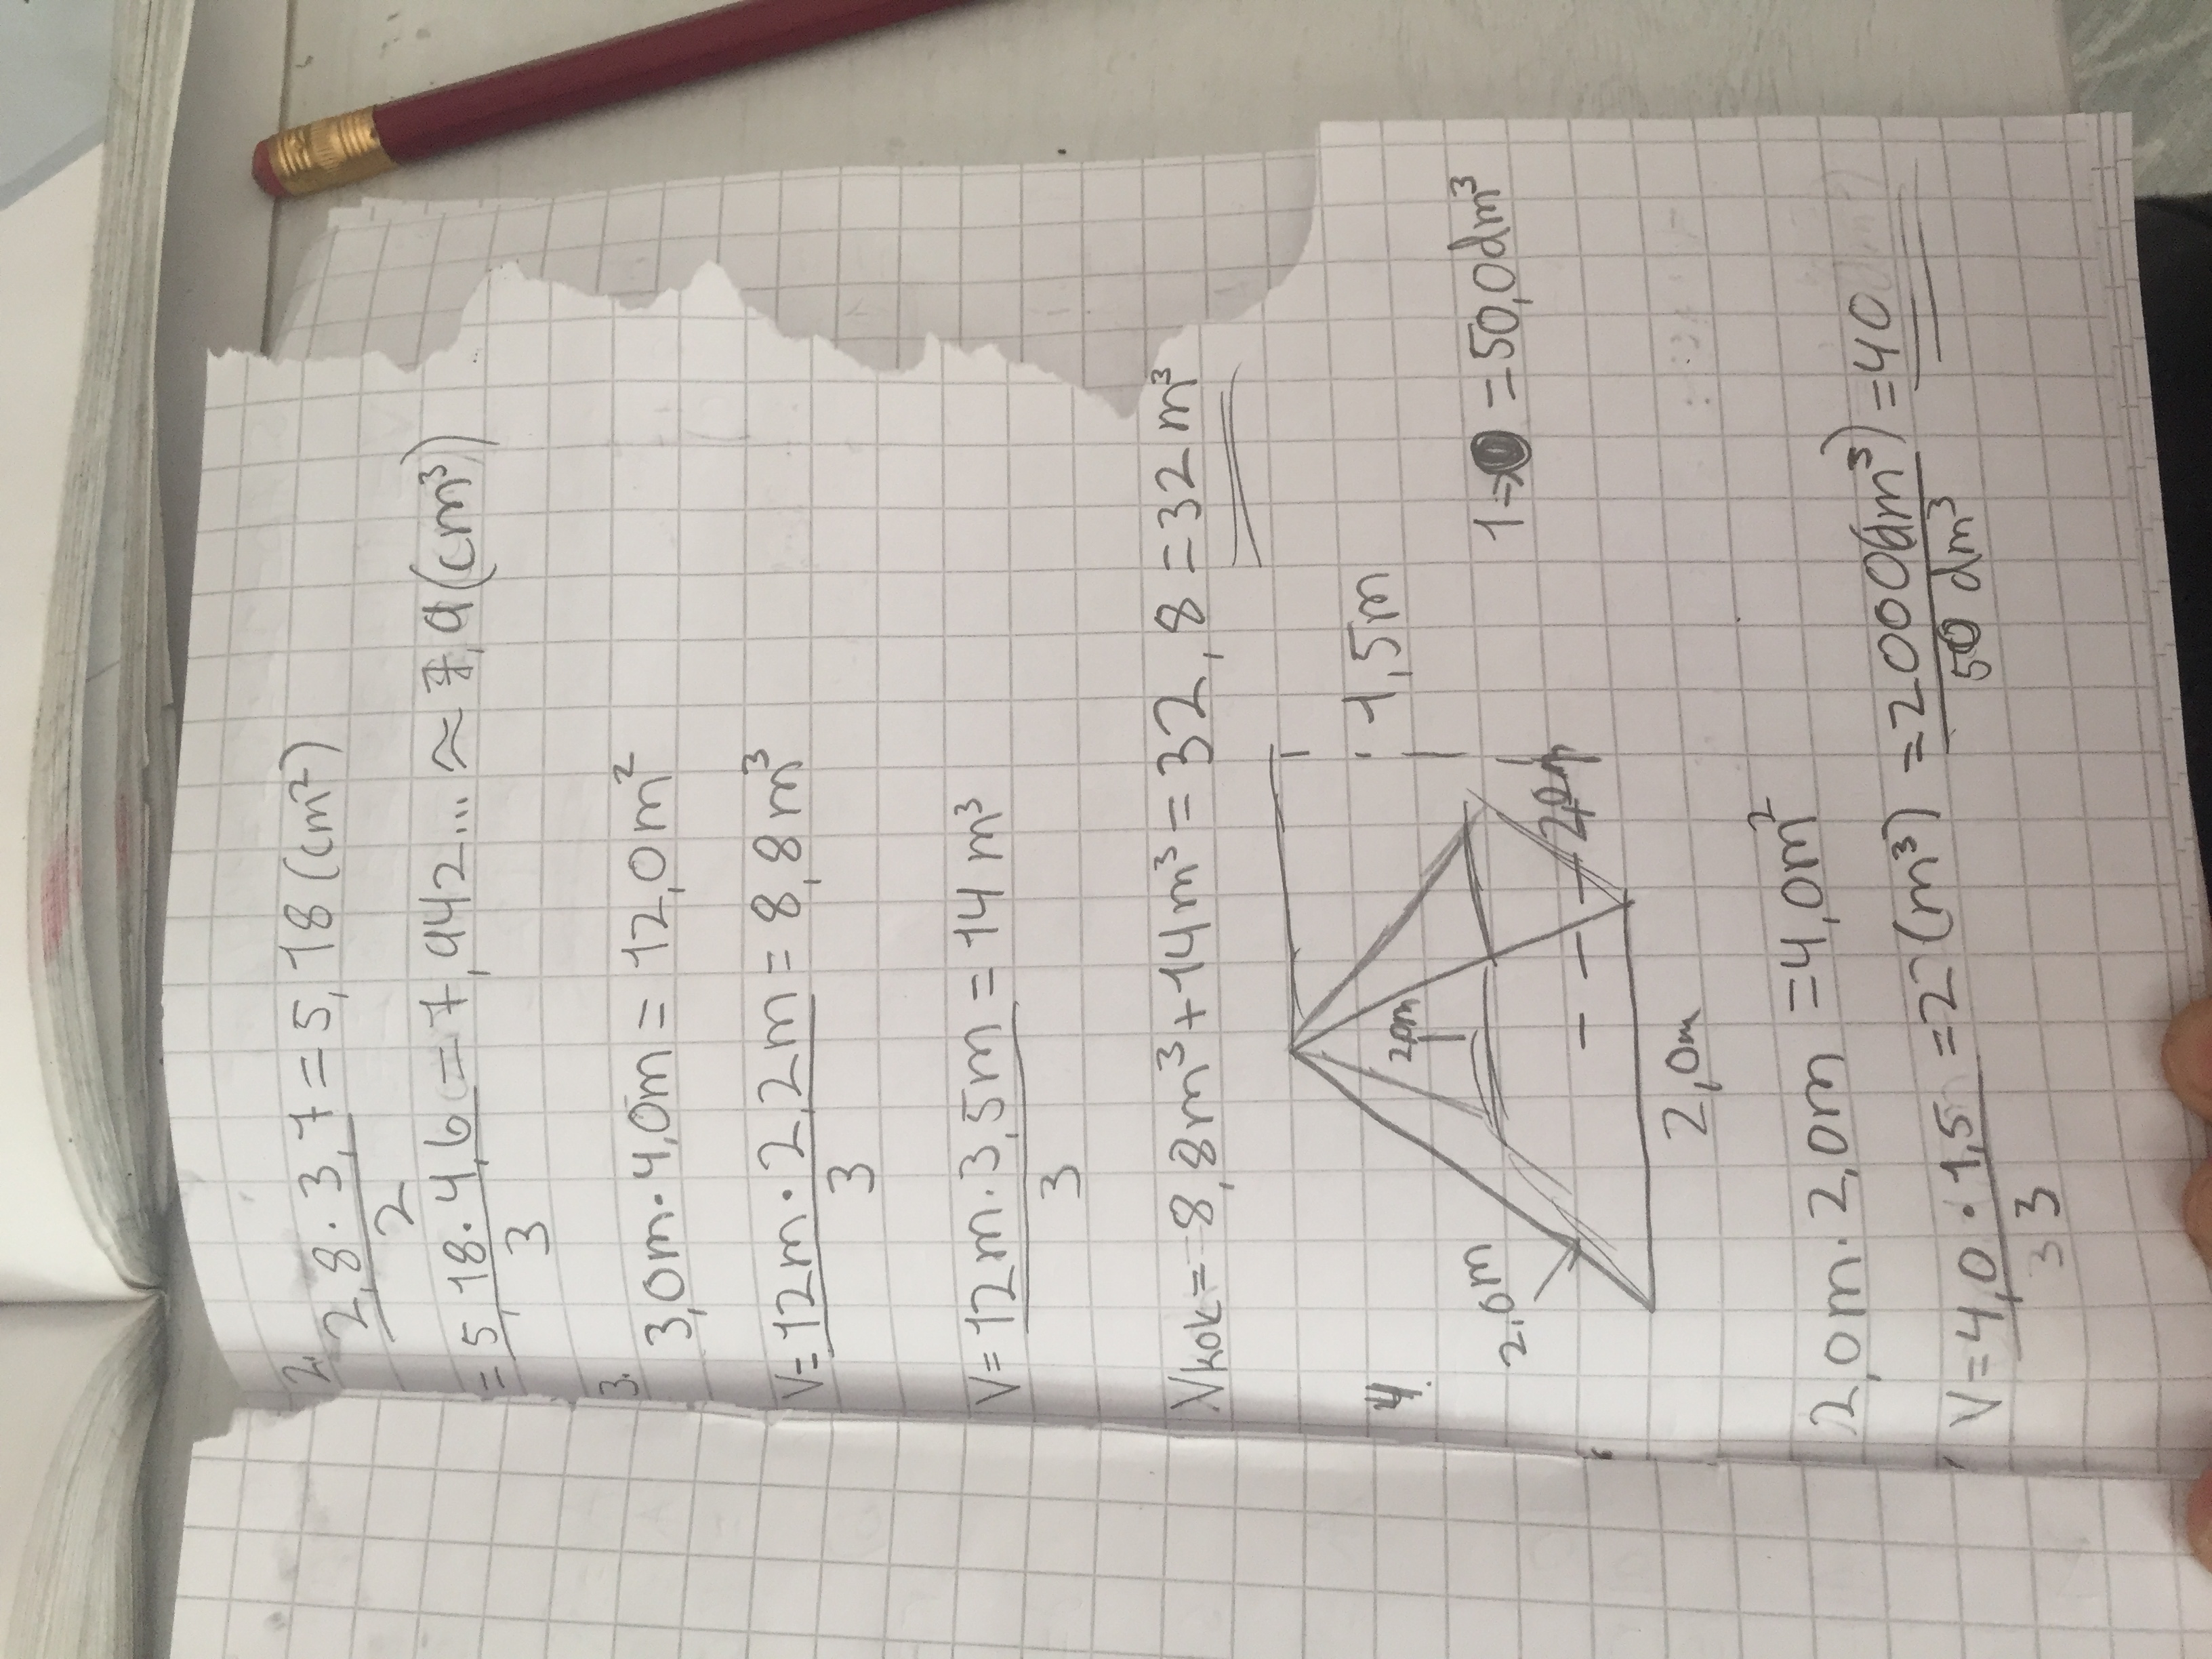 2. 2,8 · 3,7 = 5,18 (cm²)
2
= 5,18 · 4,6 = 7,942... ≈ 7,9 (cm³)
3
3. 3,0m · 4,0m = 12,0m²
V = 12m · 2,2m = 8,8m³
3
V = 12m · 3,5m = 14m³
3
Vkok = 8,8m³ + 14m³ = 32,8 = 32m³
4.
1,5m
1 = 50,0dm³
2,0m
2,0m
2,0m
2,0m · 2,0m = 4,0m²
V = 4,0 · 1,5 = 2 (m³) = 2000(dm³) = 40
3 3
50 dm³